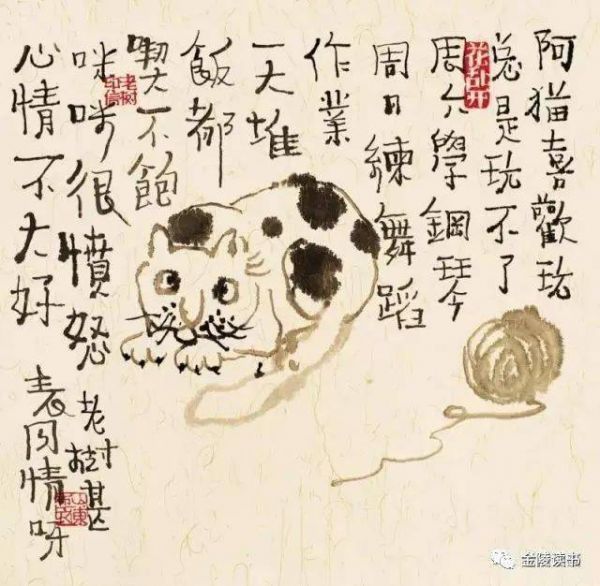 阿猫喜歡玩
总是玩不了
周六學鋼琴
周日練舞蹈
作業
一大堆
飯都
喫不飽
咪咪很憤怒
心情不大好
老树甚
表同情呀
花乱开
老树印信
金陵读书